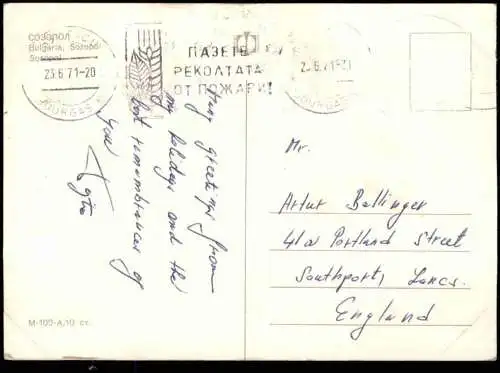 СОЗОПОЛ
Bulgaria, Sozopol
23.6.71-20
BOURGAS
ПАЗЕТЕ
РЕКОЛТАТА
ОТ ПОЖАРИ!
BOURGAS
greetings from
my holidays and the
best remembrances of
you
Mr.
Artur Ballinger
Portland Street
Southport, Lancs.
England
М-100-А,10 ст.